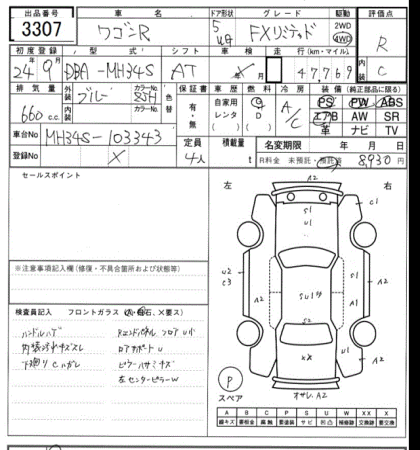 出品番号 車名 ドア形状 グレード 駆動 評価点
3307 ワゴンR 5 FXリミテッド 2WD 4WD R
初度登録 型式 シフト 車検 走行(km・マイル) 内
24年9月 DBA-MH34S AT 47,769 C
排気量 外装 カラーNo. 色替 保証書 車歴 燃料 冷房 装備(純正品に限る)
660cc. 内装 ブルー カラーNo. 有・無 自家用 レンタ G D A/C PS PW ABS
エアB AW SR
革 ナビ TV
車台No MH34S-103343 定員 4人 積載量 t 名変期限 年 月 日
登録No X R料金 未預託・預託済 8,930円
セールスポイント
左 右
※注意事項記入欄(修復・不具合箇所および状態等)
検査員記入 フロントガラス
ハンドルハゲ
内装汚れキズスレ
下廻りCハガレ
ロアサポートU
左センターピラーW
A2
C1
S1
U1
U2
C3
A2
A1
A2
S2
XX
U1
A2
P
スペア
A2
A B C P S U W X XX
線キズ 要板金 腐触 要塗装 サビ 凹凸 補修跡 交換跡 要交換